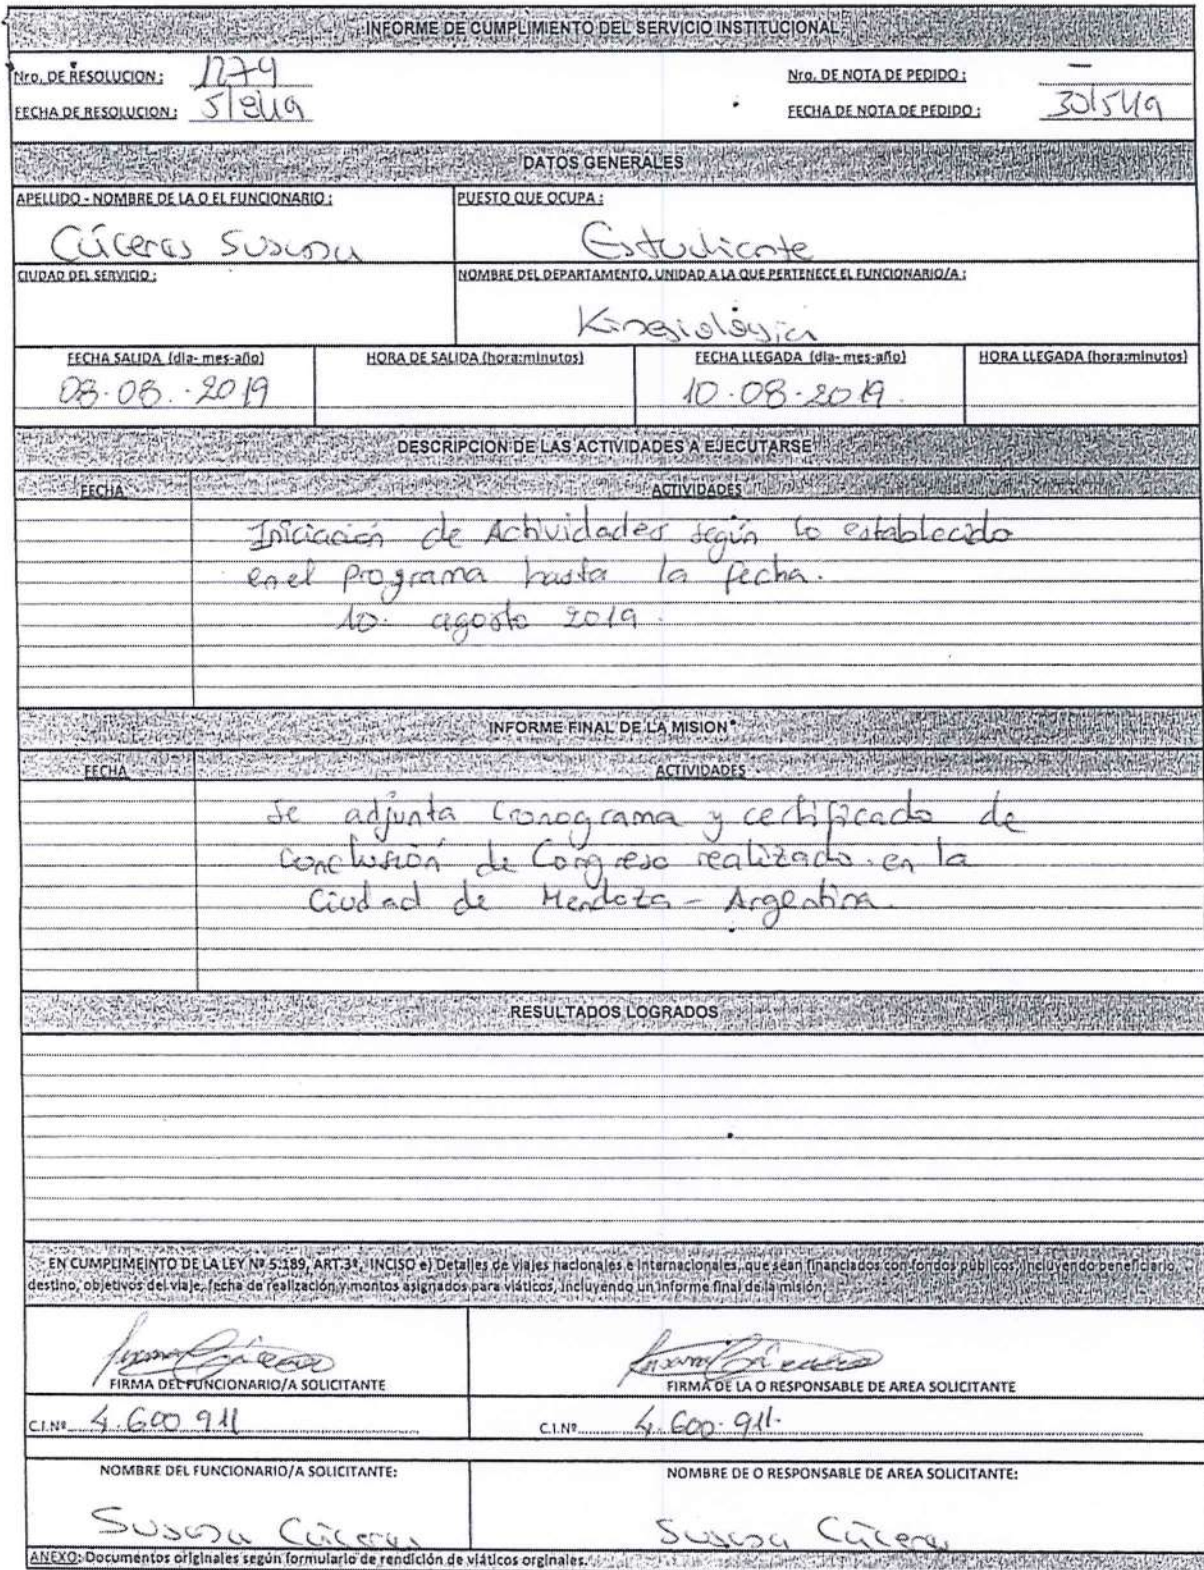 INFORME DE CUMPLIMIENTO DEL SERVICIO INSTITUCIONAL
Nro. DE RESOLUCION : 1274
Nro. DE NOTA DE PEDIDO : —
FECHA DE RESOLUCION : 5/8/19
FECHA DE NOTA DE PEDIDO : 30/5/19
DATOS GENERALES
APELLIDO - NOMBRE DE LA O EL FUNCIONARIO :
PUESTO QUE OCUPA :
Cáceres Susana
Estudiante
CIUDAD DEL SERVICIO :
NOMBRE DEL DEPARTAMENTO, UNIDAD A LA QUE PERTENECE EL FUNCIONARIO/A :
Kinesiología
FECHA SALIDA (dia- mes-año)
HORA DE SALIDA (hora:minutos)
FECHA LLEGADA (dia- mes-año)
HORA LLEGADA (hora:minutos)
08-08-2019
10-08-2019
DESCRIPCION DE LAS ACTIVIDADES A EJECUTARSE
FECHA
ACTIVIDADES
Iniciación de Actividades según lo establecido
en el programa hasta la fecha.
10. agosto 2019.
INFORME FINAL DE LA MISION
FECHA
ACTIVIDADES
Se adjunta Cronograma y certificado de
Conclusión de Congreso realizado en la
Ciudad de Mendoza - Argentina.
RESULTADOS LOGRADOS
- EN CUMPLIMEINTO DE LA LEY Nº 5.189, ART.3º, INCISO e) Detalles de viajes nacionales e internacionales, que sean financiados con fondos públicos, incluyendo beneficiario,
destino, objetivos del viaje, fecha de realización y montos asignados para viáticos, incluyendo un informe final de la misión.
FIRMA DEL FUNCIONARIO/A SOLICITANTE
FIRMA DE LA O RESPONSABLE DE AREA SOLICITANTE
C.I.Nº 4.600.911
C.I.Nº 4.600.911.
NOMBRE DEL FUNCIONARIO/A SOLICITANTE:
NOMBRE DE O RESPONSABLE DE AREA SOLICITANTE:
Susana Cáceres
Susana Cáceres
ANEXO: Documentos originales según formulario de rendición de viáticos orginales.